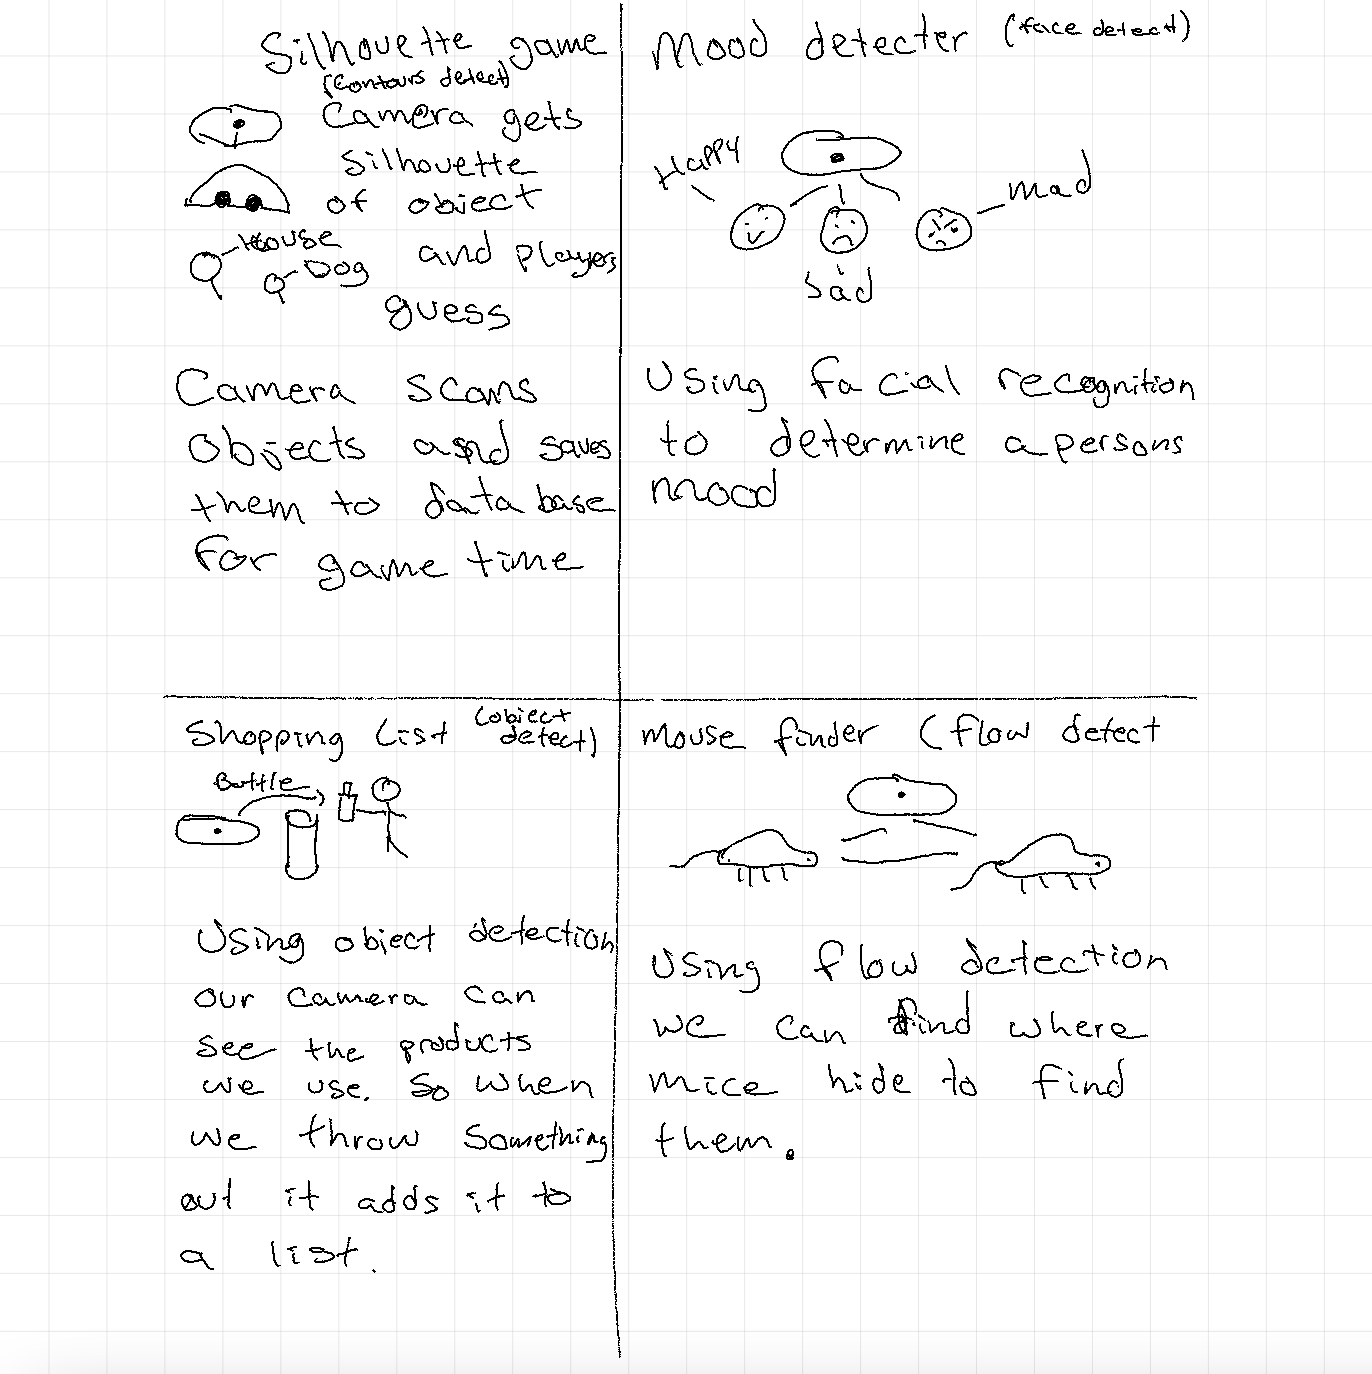 Silhouette game
(Contours detect)
Camera gets
Silhouette
of object
House
Dog
and players
guess
Camera scans
objects and saves
them to data base
for game time
Mood detecter (face detect)
Happy
mad
Sad
Using facial recognition
to determine a persons
mood
Shopping List (object
detect)
Bottle
Using object detection
our camera can
see the products
we use. So when
we throw something
out it adds it to
a list.
mouse finder (flow detect
Using flow detection
we can find where
mice hide to find
them.